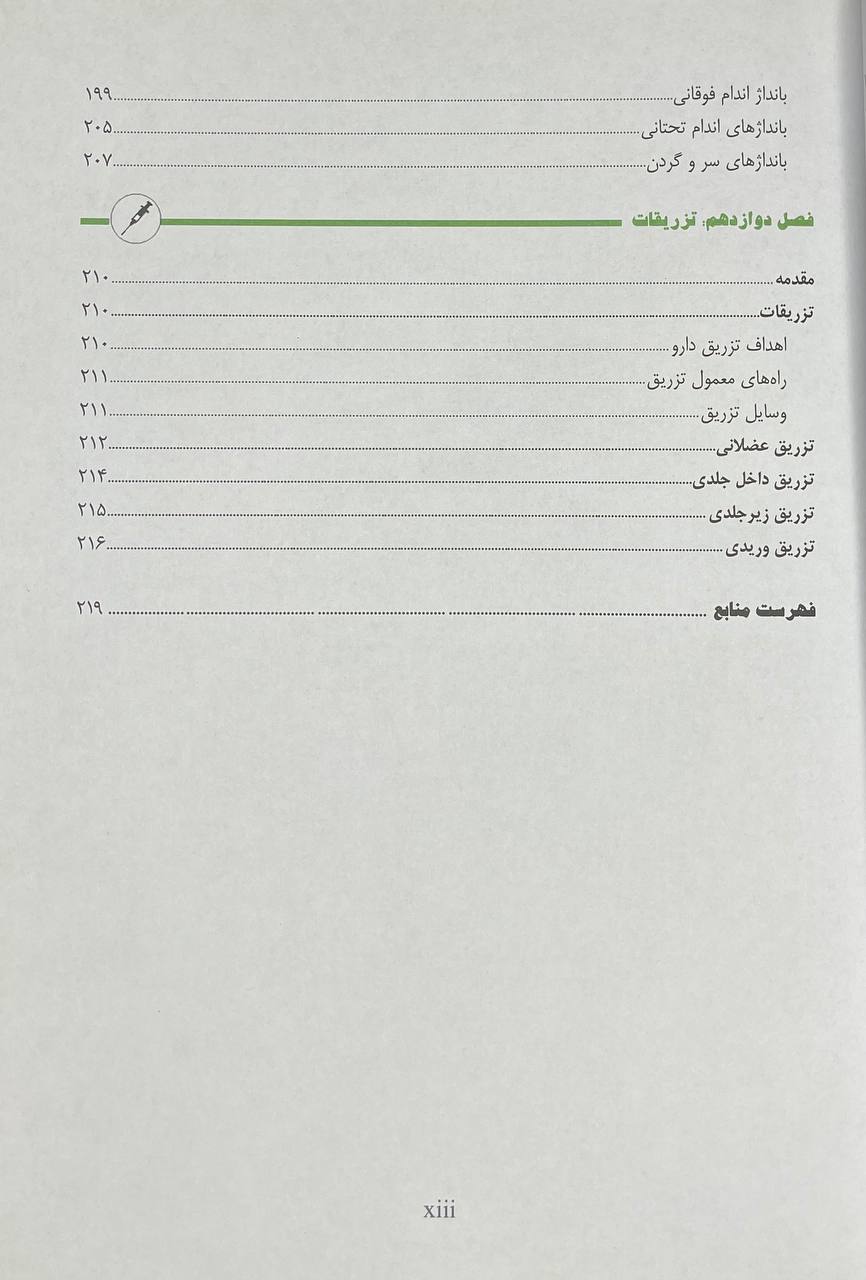 بانداژ اندام فوقانی........................۱۹۹
بانداژهای اندام تحتانی........................۲۰۵
بانداژهای سر و گردن........................۲۰۷
فصل دوازدهم: تزریقات
مقدمه........................۲۱۰
تزریقات........................۲۱۰
اهداف تزریق دارو........................۲۱۰
راه‌های معمول تزریق........................۲۱۱
وسایل تزریق........................۲۱۱
تزریق عضلانی........................۲۱۲
تزریق داخل جلدی........................۲۱۴
تزریق زیرجلدی........................۲۱۵
تزریق وریدی........................۲۱۶
فهرست منابع ........................ ۲۱۹
xiii